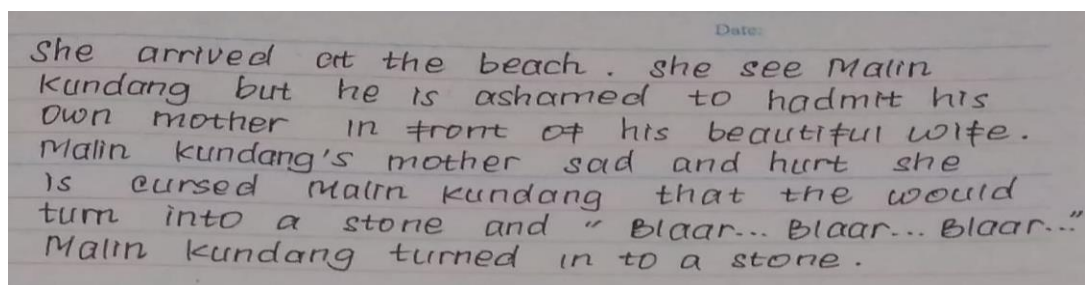 Date:
She arrived at the beach. she see Malin
Kundang but he is ashamed to hadmit his
own mother in front of his beautiful wife.
Malin kundang's mother sad and hurt she
is cursed Malin kundang that the would
turn into a stone and "Blaar... Blaar... Blaar..."
Malin kundang turned in to a stone.